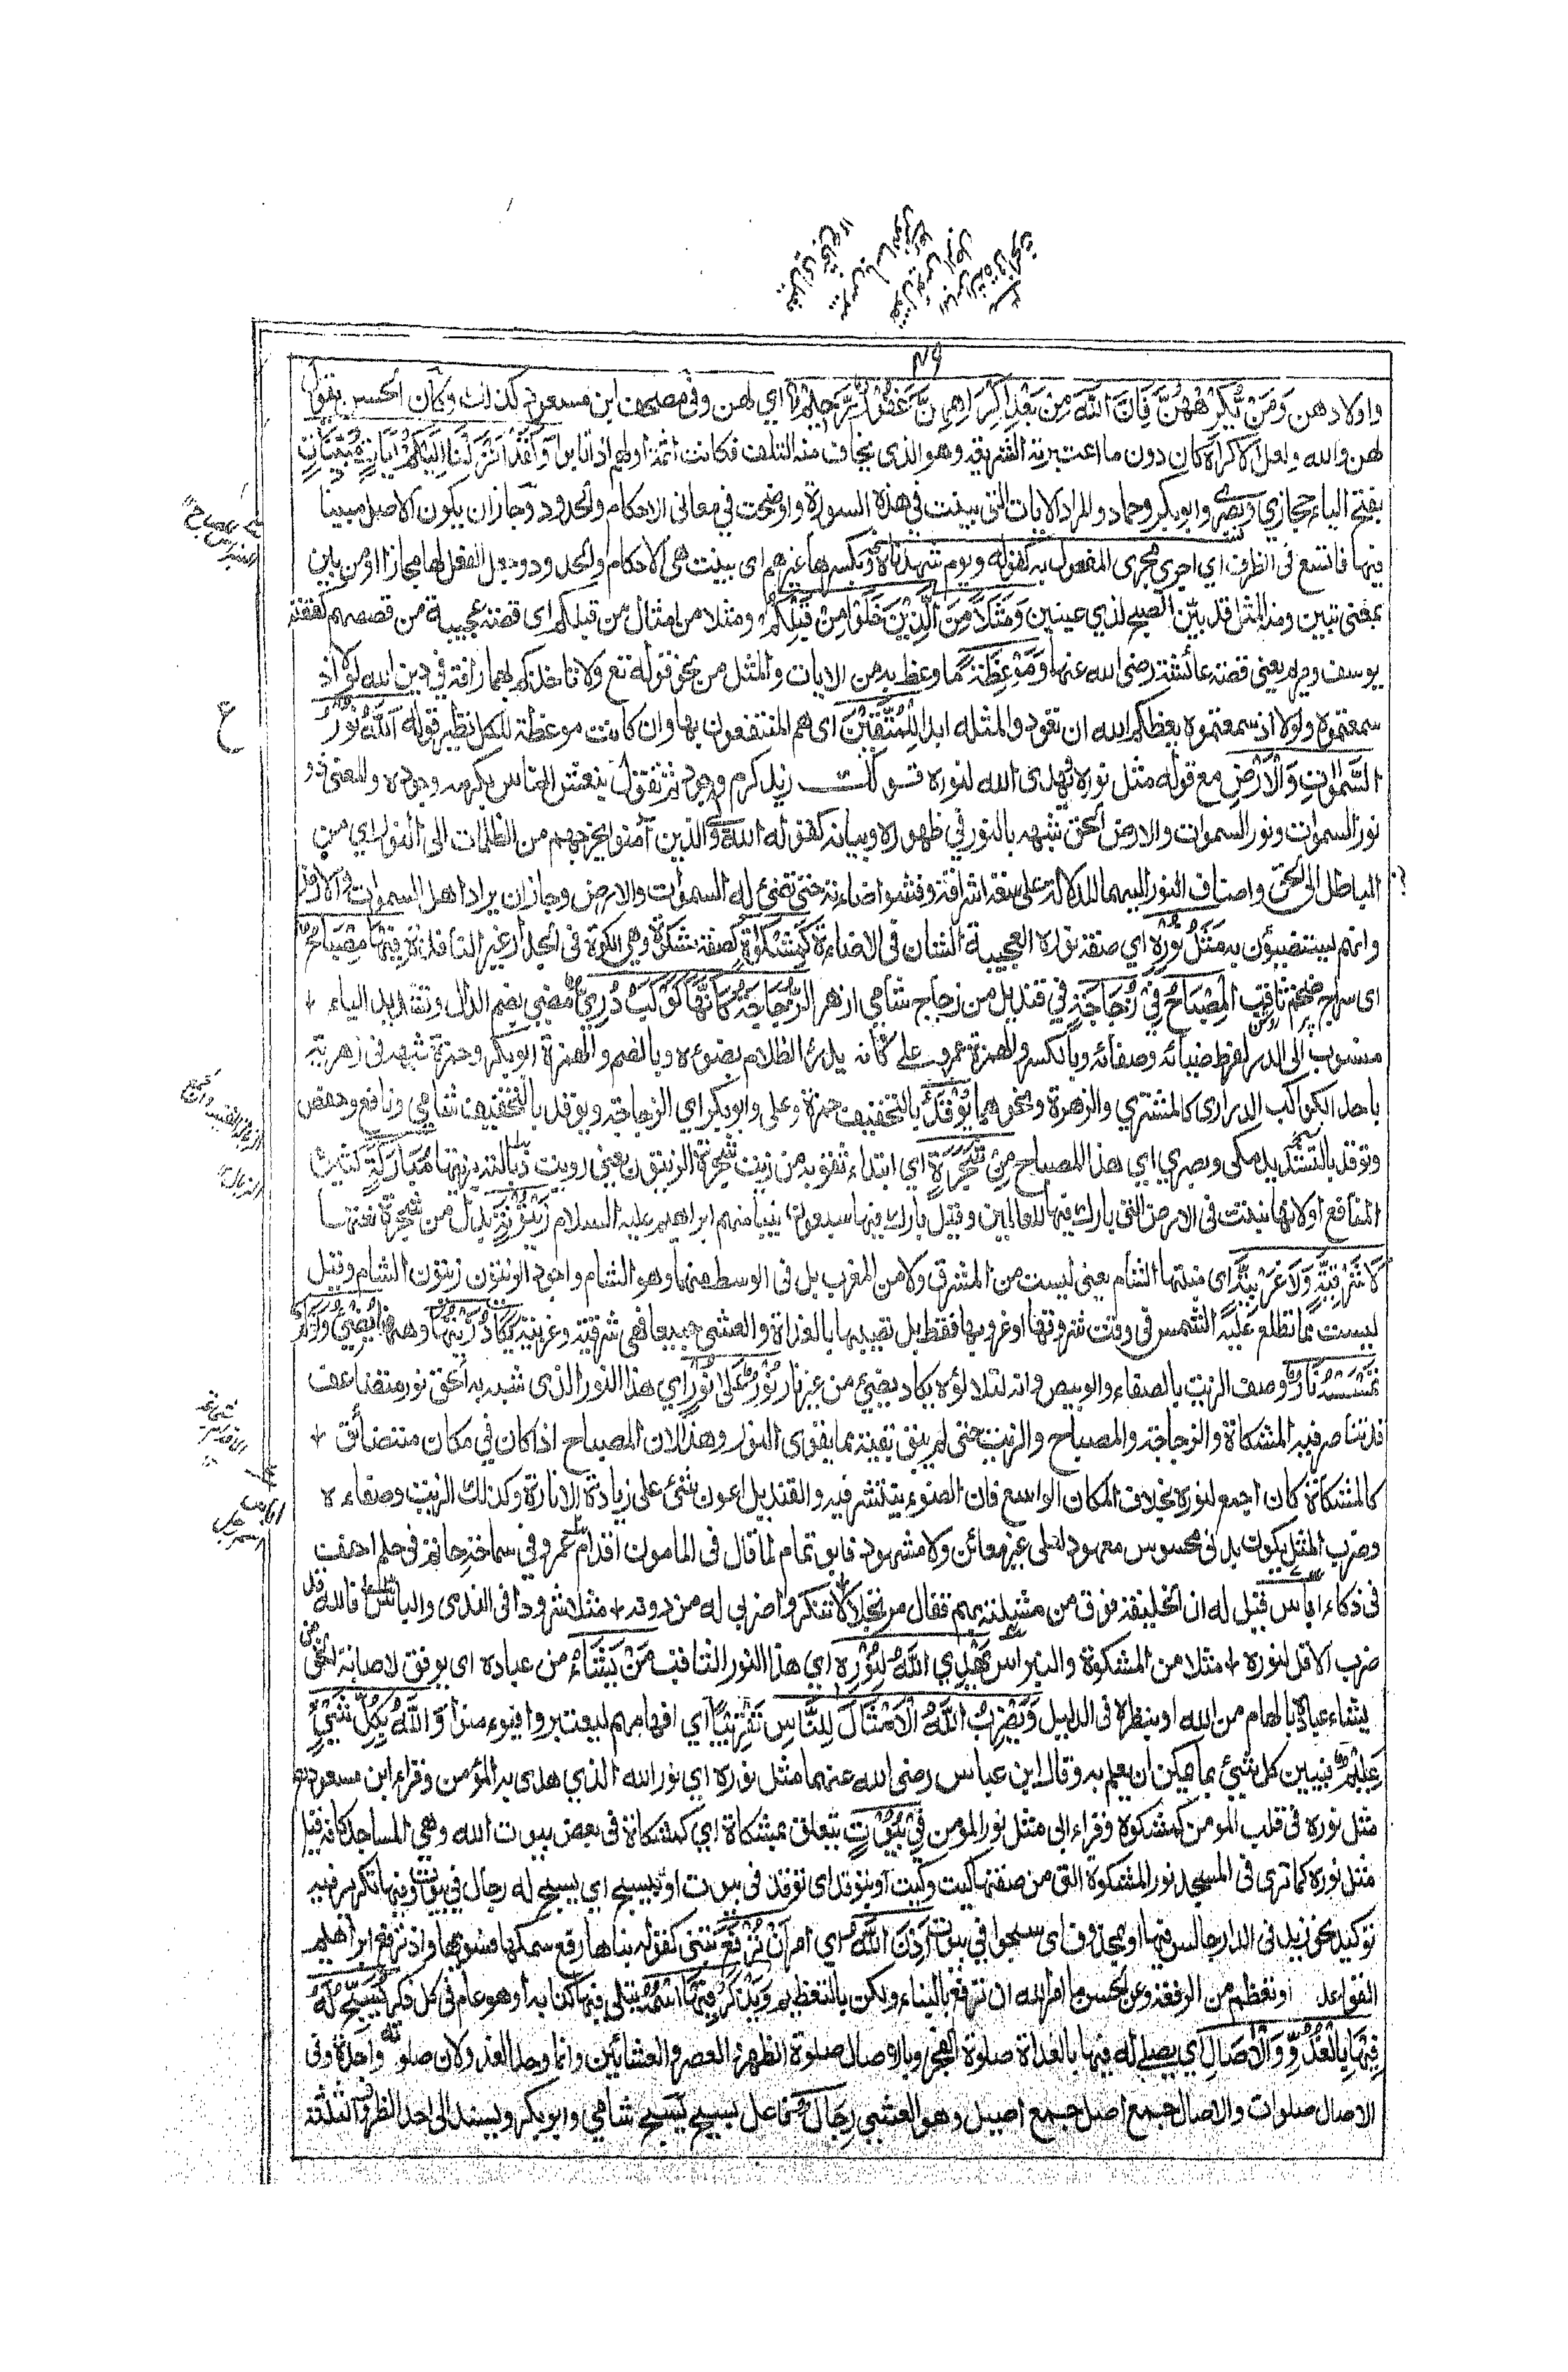 واولادهن وَمَنْ يُّكْرِهْهُنَّ فَاِنَّ اللّٰهَ مِنْ بَعْدِ اِكْرَاهِهِنَّ غَفُوْرٌ رَّحِيْمٌ اي لهن وفي مصحف ابن مسعود كذلك وكان الحسن يقول
لهن والله ولعل الاكراه كان دون ما اعتبرته الشريعة وهو الذي يخاف منه التلف فكانت اثمة اولهم اذا تابوا وَلَقَدْ اَنْزَلْنَا اِلَيْكُمْ اٰيَاتٍ مُّبَيِّنَاتٍ
بفتح الياء حجازي وبصري وابوبكر وحماد والمراد الايات التي بينت في هذه السورة واوضحت في معاني الاحكام والحدود وجاز ان يكون الاصل مبينا
فيها فاتسع في الظرف اي اجرى مجرى المفعول به كقوله ويوم شهدناه وبكسرها غيرهم اي بينت هي الاحكام والحدود جعل الفعل لها مجازا او من بين
بمعنى تبين ومنه المثل قد بيّن الصبح لذي عينين وَمَثَلًا مِّنَ الَّذِيْنَ خَلَوْا مِنْ قَبْلِكُمْ ومثلا من امثال من قبلكم اى قصة عجيبة من قصصهم كقصة
يوسف ومريم يعني قصة عائشة رضى الله عنها وَمَوْعِظَةً ما وعظ به من الايات والمثل من نحو قوله تع ولا تاخذكم بهما رافة في دين الله لولا اذ
سمعتموه ولولا اذ سمعتموه يعظكم الله ان تعودوا لمثله ابدا لِّلْمُتَّقِيْنَ اى هم المنتفعون بها وان كانت موعظة للكل نظير قوله اَللّٰهُ نُوْرُ
السَّمٰوٰتِ وَالْاَرْضِ مع قوله مثل نوره ويهدى الله لنوره قولك زيد كرم وجود ثم تقول ينعش الناس بكرمه وجوده والمعنى ذو
نور السموات ونور السموات والارض الحق شبهه بالنور في ظهوره وبيانه كقوله الله ولي الذين آمنوا يخرجهم من الظلمات الى النور اي من
الباطل الى الحق واضاف النور اليهما للدلالة على سعة اشراقه وفشو اضاءته حتى تضئ له السموات والارض وجاز ان يراد اهل السموات والارض
وانهم يستضيؤن به مَثَلُ نُوْرِهٖ اي صفة نوره العجيبة الشان في الاضاءة كَمِشْكٰوةٍ كصفة مشكوة وهي الكوة في الجدار غير النافذة فِيْهَا مِصْبَاحٌ
اى سراج ضخم ثاقب اَلْمِصْبَاحُ فِيْ زُجَاجَةٍ في قنديل من زجاج شامي ازهر اَلزُّجَاجَةُ كَاَنَّهَا كَوْكَبٌ دُرِّيٌّ مضيئ بضم الدال وتشديد الياء
منسوب الى الدر لفرط ضيائه وصفائه وبالكسر والهمزة عمرو وعلي كانه يدرئ الظلام بضوءه وبالضم والهمزة ابوبكر وحمزة شبهه في زهرته
باحد الكواكب الدراري كالمشتري والزهرة ونحوهما يُوْقَدُ بالتخفيف حمزة وعلي وابوبكر اي الزجاجة ويوقد بالتخفيف شامي ونافع وحفص
وتوقد بالتشديد مكي وبصري اي هذا المصباح مِنْ شَجَرَةٍ اي ابتداء ثقوبه من زيت شجرة الزيتون يعني رويت ذبالته بزيتها مُّبَارَكَةٍ كثيرة
المنافع او لانها نبتت في الارض التي بارك فيها للعالمين وقيل بارك فيها سبعون نبيا منهم ابراهيم عليه السلام زَيْتُوْنَةٍ بدل من شجرة نعتها
لَّا شَرْقِيَّةٍ وَّلَا غَرْبِيَّةٍ اى منبتها الشام يعني ليست من المشرق ولا من المغرب بل في الوسط منهما وهو الشام واجود الزيتون زيتون الشام وقيل
ليست مما تطلع عليه الشمس في وقت شروقها او غروبها فقط بل تصيبها بالغداة والعشي جميعا فهي شرقية وغربية يَّكَادُ زَيْتُهَا دهنها يُضِيْءُ وَلَوْ لَمْ
تَمْسَسْهُ نَارٌ وصف الزيت بالصفاء والوبيص وانه لتلالؤه يكاد يضيئ من غير نار نُوْرٌ عَلٰى نُوْرٍ اي هذا النور الذي شبه به الحق نور متضاعف
قد تناصر فيه المشكاة والزجاجة والمصباح والزيت حتى لم يبق بقية مما يقوى النور وهذا لان المصباح اذا كان في مكان متضائق
كالمشكاة كان اجمع لنوره بخلاف المكان الواسع فان الضوء ينتشر فيه والقنديل اعون شئ على زيادة الانارة وكذلك الزيت وصفاءه
وضرب المثل يكون بدنى محسوس معهود لا على غير معائن ولا مشهود فابو تمام لما قال في المامون اقدام عمرو في سماحة حاتم في حلم احنف
في ذكاء اياس قيل له ان الخليفة فوق من مثلته بهم فقال مرتجلا لا تنكروا ضربي له من دونه مثلا شرودا في الندى والباس فالله قد
ضرب الاقل لنوره مثلا من المشكوة والنبراس يَهْدِي اللّٰهُ لِنُوْرِهٖ اي هذا النور الثاقب مَنْ يَّشَآءُ من عباده اى يوفق لاصابة الحق من
يشاء عباده بالهام من الله او بنظره في الدليل وَيَضْرِبُ اللّٰهُ الْاَمْثَالَ لِلنَّاسِ تقريبا اي افهامهم ليعتبروا فيؤمنوا وَاللّٰهُ بِكُلِّ شَيْءٍ
عَلِيْمٌ فيبين كل شيئ بما يمكن ان يعلم به وقال ابن عباس رضى الله عنهما مثل نوره اي نور الله الذي هدى به المؤمن وقراء ابن مسعود
مثل نوره في قلب المومن كمشكوة وقراء ابي مثل نور المومن فِيْ بُيُوْتٍ يتعلق بمشكاة اي كمشكاة في بعض بيوت الله وهي المساجد كانه قيل
مثل نوره كما ترى في المسجد نور المشكوة التي من صفتها كيت وكيت او بتوقد اى توقد في بيوت او بيسبح اي يسبح له رجال في بيوت وفيها تكرير فيه
توكيد نحو زيد في الدار جالس فيها او بمحذوف اى سبحوا في بيوت اَذِنَ اللّٰهُ اي امر اَنْ تُرْفَعَ تبنى كقوله بناها رفع سمكها فسويها واذ يرفع ابراهيم
القواعد او تعظم من الرفعة وعن الحسن ما امر الله ان ترفع بالبناء ولكن بالتعظيم وَيُذْكَرَ فِيْهَا اسْمُهٗ يتلى فيها كتابه او هو عام في كل ذكر يُسَبِّحُ لَهٗ
فِيْهَا بِالْغُدُوِّ وَالْاٰصَالِ اي يصلي له فيها بالغداة صلوة الفجر وبالاصال صلوة الظهر والعصر والعشائين وانما وحد الغدو لان صلوته واحدة وفي
الاصال صلوات والاصال جمع اصل جمع اصيل وهو العشي رِجَالٌ فاعل يسبح يُسَبَّحُ شامي وابوبكر ويسند الى احد الظروف الثلثة